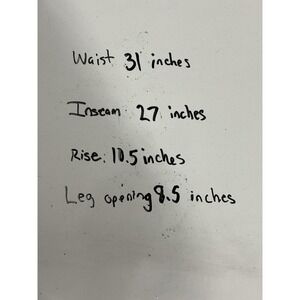 Waist 31 inches
Inseam: 27 inches
Rise: 10.5 inches
Leg opening 8.5 inches